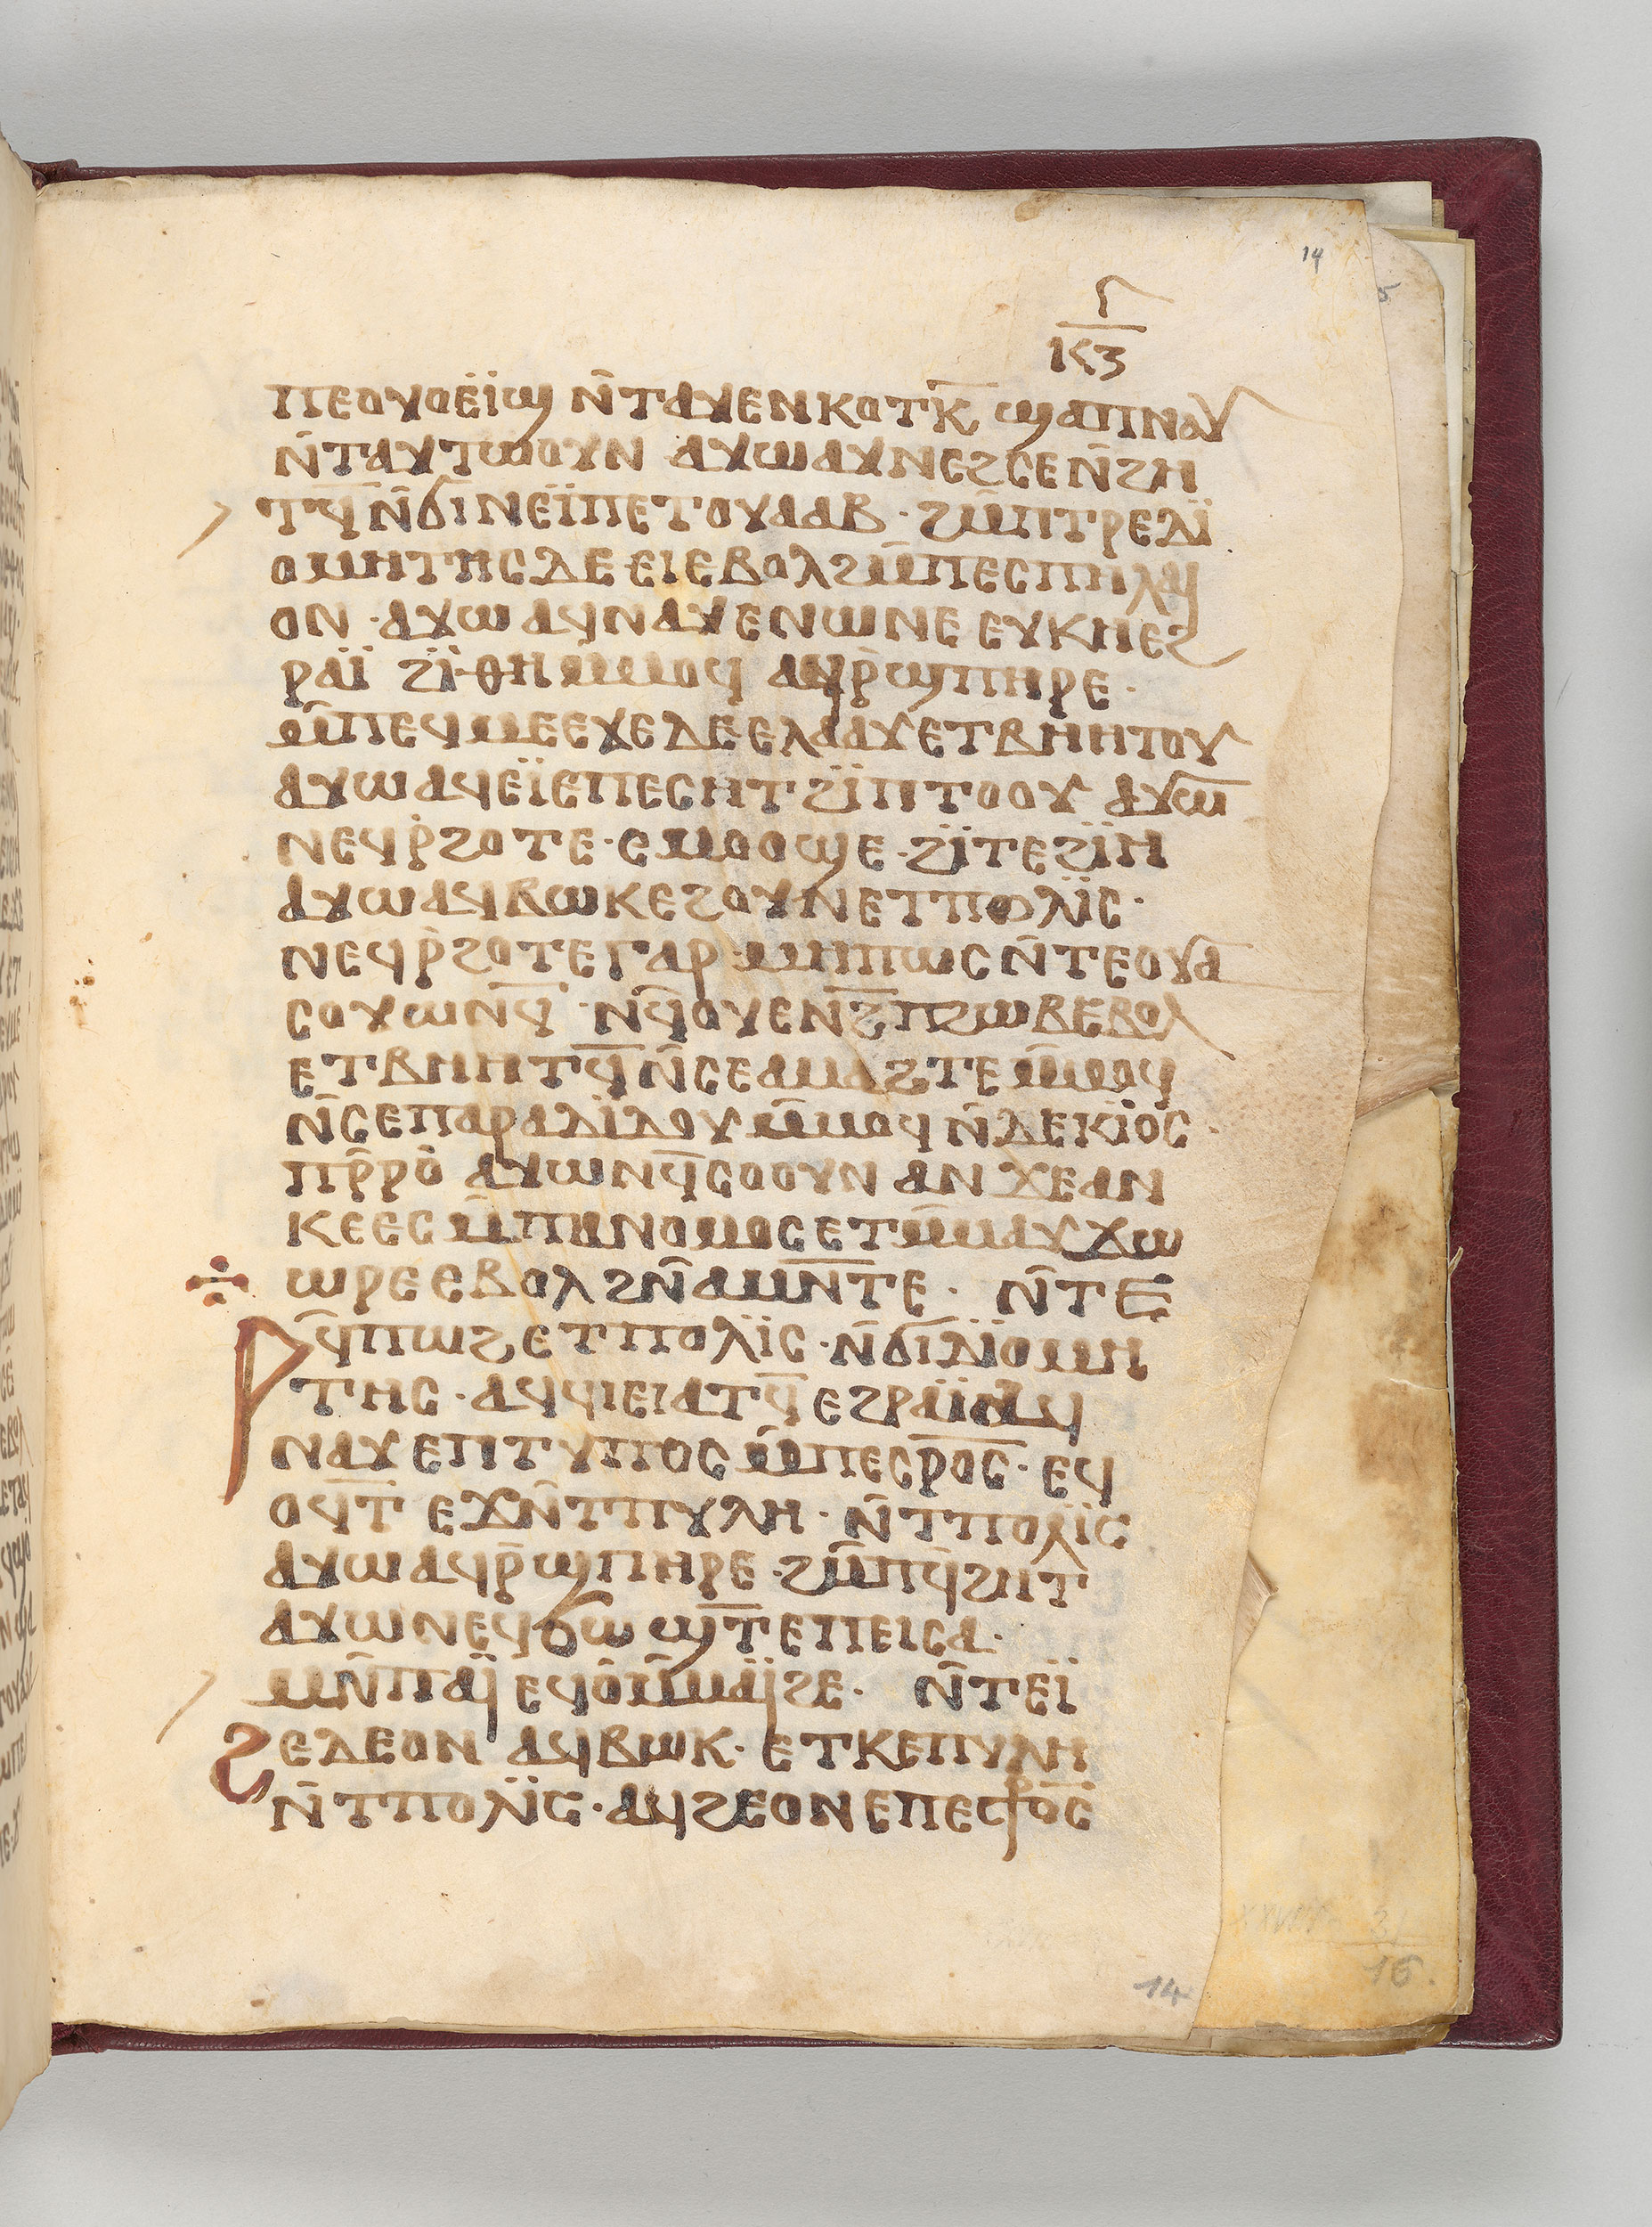 14
ⲅ
ⲕⲍ
ⲡⲉⲟⲩⲟⲉⲓ̈ϣ ⲛ̄ⲧⲁⲩⲉⲛⲕⲟⲧⲕ̄ ϣⲁⲡⲛⲁⲩ
ⲛ̄ⲧⲁⲩⲧⲱⲟⲩⲛ ⲁⲩⲱⲁⲩⲛⲉϩⲥⲉⲛ̄ϩⲏ
ⲧϥ̄ⲛ̄ϭⲓⲛⲉⲓ̈ⲡⲉⲧⲟⲩⲁⲁⲃ · ϩⲙ̄ⲡⲧⲣⲉⲇⲓ̈
ⲟⲙⲏⲧⲏⲥⲇⲉ ⲉⲓⲉⲃⲟⲗϩⲙ̄ⲡⲉⲥⲡⲏⲗⲩ
ⲟⲛ · ⲁⲩⲱ ⲁϥⲛⲁⲩⲉⲛⲱⲛⲉ ⲉⲩⲕⲏⲉϩ
ⲣⲁⲓ̈ ϩⲓ̈ⲑⲏⲙⲙⲟϥ ⲁϥⲣ̄ϣⲡⲏⲣⲉ ·
ⲙ̄ⲡⲉϥⲙⲉⲉⲩⲉⲇⲉⲉⲗⲁⲁⲩⲉⲧⲃⲏⲏⲧⲟⲩ
ⲁⲩⲱⲁϥⲉⲓ̈ⲉⲡⲉⲥⲏⲧ ϩⲓ̈ⲡⲧⲟⲟⲩ ⲁⲩⲱ̄
ⲛⲉϥⲣ̄ϩⲟⲧⲉ · ⲉⲙⲟⲟϣⲉ · ϩⲓ̈ⲧⲉϩⲓ̈ⲏ
ⲁⲩⲱⲁϥⲃⲱⲕⲉϩⲟⲩⲛⲉⲧⲡⲟⲗⲓ̈ⲥ ·
ⲛⲉϥⲣ̄ϩⲟⲧⲉⲅⲁⲣ · ⲙⲏⲡⲱⲥ ⲛ̄ⲧⲉⲟⲩⲁ̄
ⲥⲟⲩⲱⲛϥ̄ · ⲛϥ̄ⲟⲩⲉⲛϩ̄ⲡϩⲱⲃⲉⲃⲟⲗ
ⲉⲧⲃⲏⲏⲧϥ̄ ⲛ̄ⲥⲉⲁⲙⲁϩⲧⲉ ⲙ̄ⲙⲟϥ
ⲛ̄ⲥⲉⲡⲁⲣⲁⲇⲓ̈ⲇⲟⲩ ⲙ̄ⲙⲟϥ ⲛ̄ⲇⲉⲕⲓ̈ⲟⲥ ·
ⲡⲣ̄ⲣⲟ̀ ⲁⲩⲱⲛϥ̄ⲥⲟⲟⲩⲛ ⲁⲛ ϫⲉⲁⲛ
ⲕⲉⲉⲥ ⲙ̄ⲡⲓⲁⲛⲟⲙⲟⲥ ⲉⲧⲙ̄ⲙⲁⲩ ϫⲱ
ⲱⲣⲉ ⲉⲃⲟⲗ ϩⲛ̄ⲁⲙⲛ̄ⲧⲉ · ⲛ̄ⲧⲉ
ⲣϥ̄ⲡⲱϩ ⲉⲧⲡⲟⲗⲓ̈ⲥ · ⲛ̄ϭⲓⲇⲓ̈ⲟⲙⲏ
ⲧⲏⲥ · ⲁϥϥⲓⲉⲓⲁⲧϥ̄ ⲉϩⲣⲁⲓ̈ⲁϥ
ⲛⲁⲩ ⲉⲡⲧⲩⲡⲟⲥ ⲙ̄ⲡⲉⲥⲣⲟ̄ⲥ̄ · ⲉϥ
ⲟϥⲧ̄ ⲉϫⲛ̄ⲧⲡⲩⲗⲏ · ⲛ̄ⲧⲡⲟⲗⲓ̈ⲥ
ⲁⲩⲱ ⲁϥⲣ̄ϣⲡⲏⲣⲉ · ϩⲙ̄ⲡϥ̄ϩⲏⲧ
ⲁⲩⲱ ⲛⲉϥϭⲱϣⲧ̄ ⲉⲡⲉⲓⲥⲁ ·
ⲙⲛ̄ⲡⲁⲓ̈ ⲉϥⲟ̄ⲙ̄ⲙⲁⲓ̈ϩⲉ · ⲛ̄ⲧⲉⲓ̈
ϩⲉⲇⲉⲟⲛ ⲁϥⲃⲱⲕ · ⲉⲧⲕⲉⲡⲩⲗⲏ
ⲛ̄ⲧⲡⲟⲗⲓ̈ⲥ · ⲁϥϩⲉⲟⲛ ⲉⲡⲉⲥⲣⲟ̄ⲥ̄
14
16.